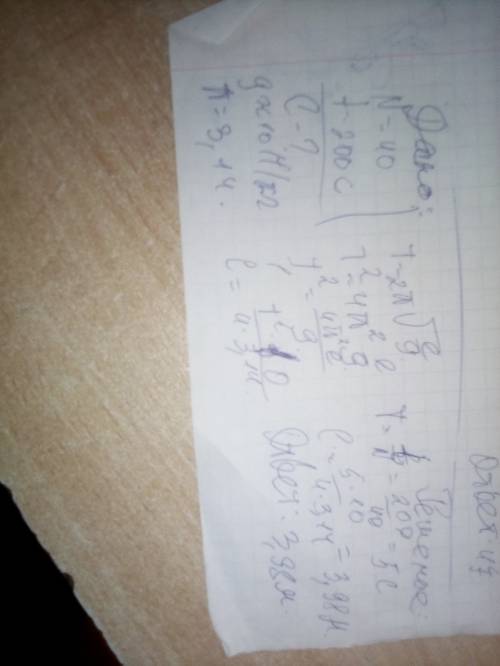 Ответ 47
Дано:
N = 40
t - 200 с
l - ?
g ≈ 10 Н/кг
π = 3,14.
T - 2π√l/g
T² = 4π² l/g
T² = 4π²l/g
l = T² · 10 / 4 · 3,14
Решение:
T = t/N = 200/40 = 5 с
l = 5 · 10 / 4 · 3,14 = 3,98 м
Ответ: 3,98 м.